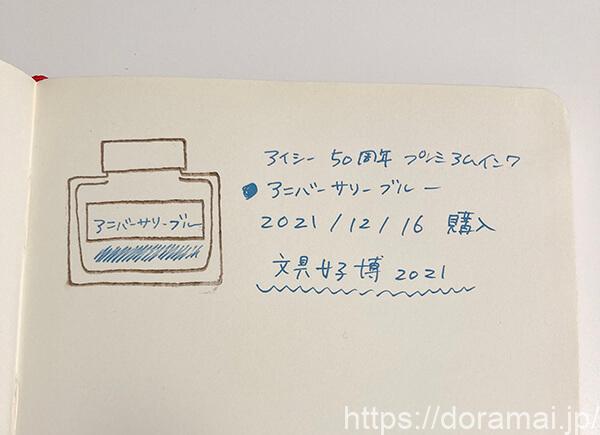 アニバーサリーブルー
アイシー 50周年 プレミアムインク
アニバーサリーブルー
2021/12/16 購入
文具女子博 2021
https://doramai.jp/